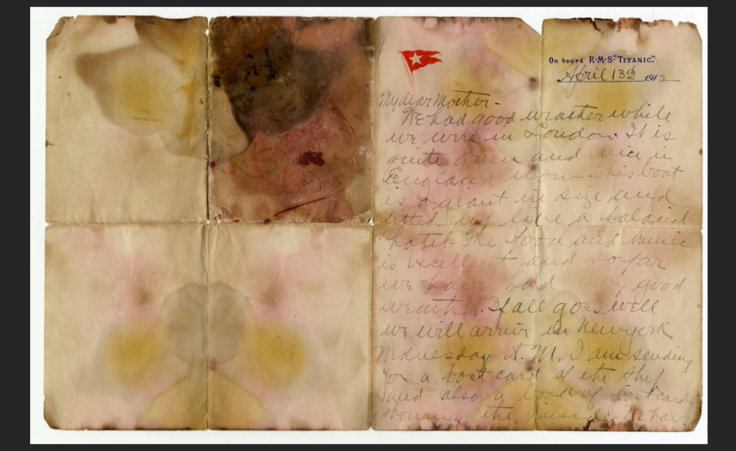 On board R·M·S "TITANIC."
April 13th 1912
My dear Mother -
We had good weather while
we were in London. It is
quite green and nice in
England now. This boat
is a giant in size and
fitted up like a palacial
hotel. The food and music
is excellent and so far
we have had very good
weather. If all goes well
we will arrive in New York
Wednesday A.M. I am sending
you a post card of the ship
and also a book of post cards
showing the inside